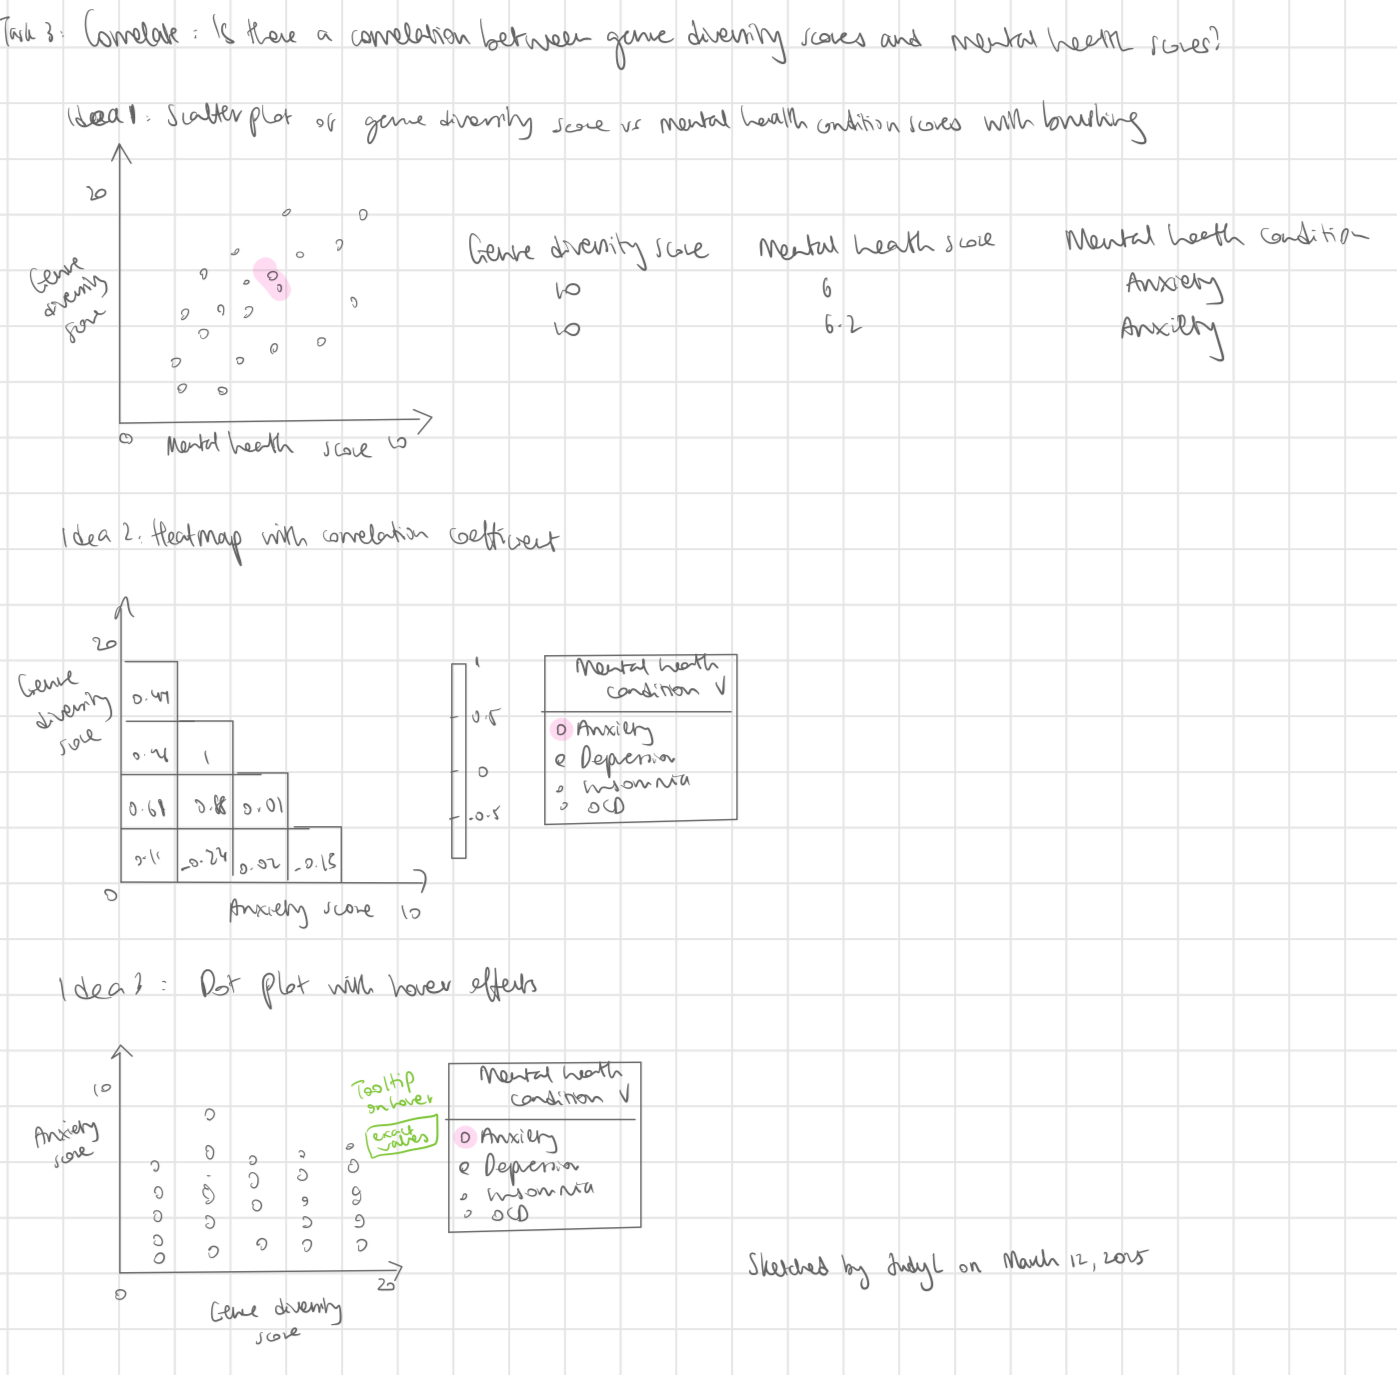 Task 3: Correlate: Is there a correlation between genre diversity scores and mental health scores?
Idea 1: Scatterplot of genre diversity score vs mental health condition scores with brushing
20
Genre
diversity
score
0 Mental health score 10
Genre diversity score Mental health score Mental health condition
10 6 Anxiety
10 6.2 Anxiety
Idea 2: Heatmap with correlation coefficient
20
Genre
diversity
score
0.47
1
0.61 0.01
-0.24 0.02 -0.15
0
Anxiety score 10
1
0.5
0
-0.5
Mental health
condition V
Anxiety
Depression
insomnia
OCD
Idea 3: Dot plot with hover effects
10
Anxiety
score
Tooltip
on hover
exact
values
Mental health
condition V
Anxiety
Depression
insomnia
OCD
0
20
Genre diversity
score
Sketched by JudyL on March 12, 2025